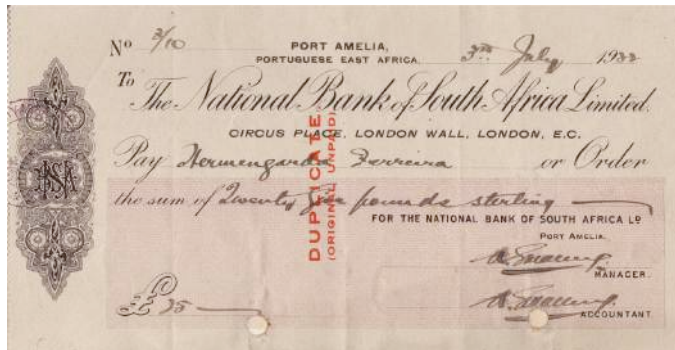 No 3/10
PORT AMELIA,
PORTUGUESE EAST AFRICA. 3rd July 1922
To The National Bank of South Africa Limited.
CIRCUS PLACE, LONDON WALL, LONDON, E.C.
Pay Hermengarda Ferreira or Order
the sum of Twenty five pounds sterling
FOR THE NATIONAL BANK OF SOUTH AFRICA LD
PORT AMELIA.
MANAGER.
£ 25
ACCOUNTANT
DUPLICATE
(ORIGINAL UNPAID)